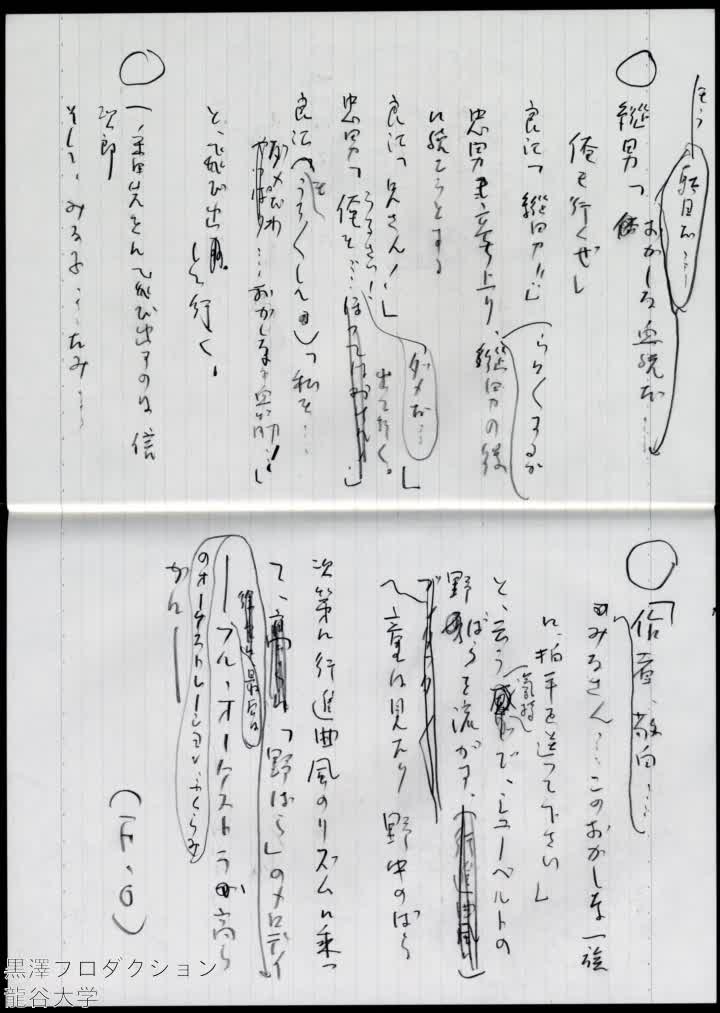 もう
駄目だ…
縦男「おかしな血統だ…
俺も行くぜ」
良江「縦男!!」
忠男も立ち上り、縦男の後
に続こうとする
良江「兄さん!」
忠男「うるさい!
ダメだ…」
出て行く。
良江「私も…
ダメだわ
…おかしな血筋!!」
と、飛び出して行く。
一番先きに飛び出すのは信
次郎
そして、みる子…たみ…
信彦、敬白…
みなさん…このおかしな一族
に、拍手を送って下さい」
と、云う気持で、シューベルトの
野ばらを流がす、(行進曲風)
〽童は見たり 野中のばら
次第に行進曲風のリズムに乗っ
て、「野ばら」のメロディ
最高
ーフル・オーケストラが高ら
のオーケストレーションふくらみ
かに──
(F・O)
黒澤プロダクション
龍谷大学